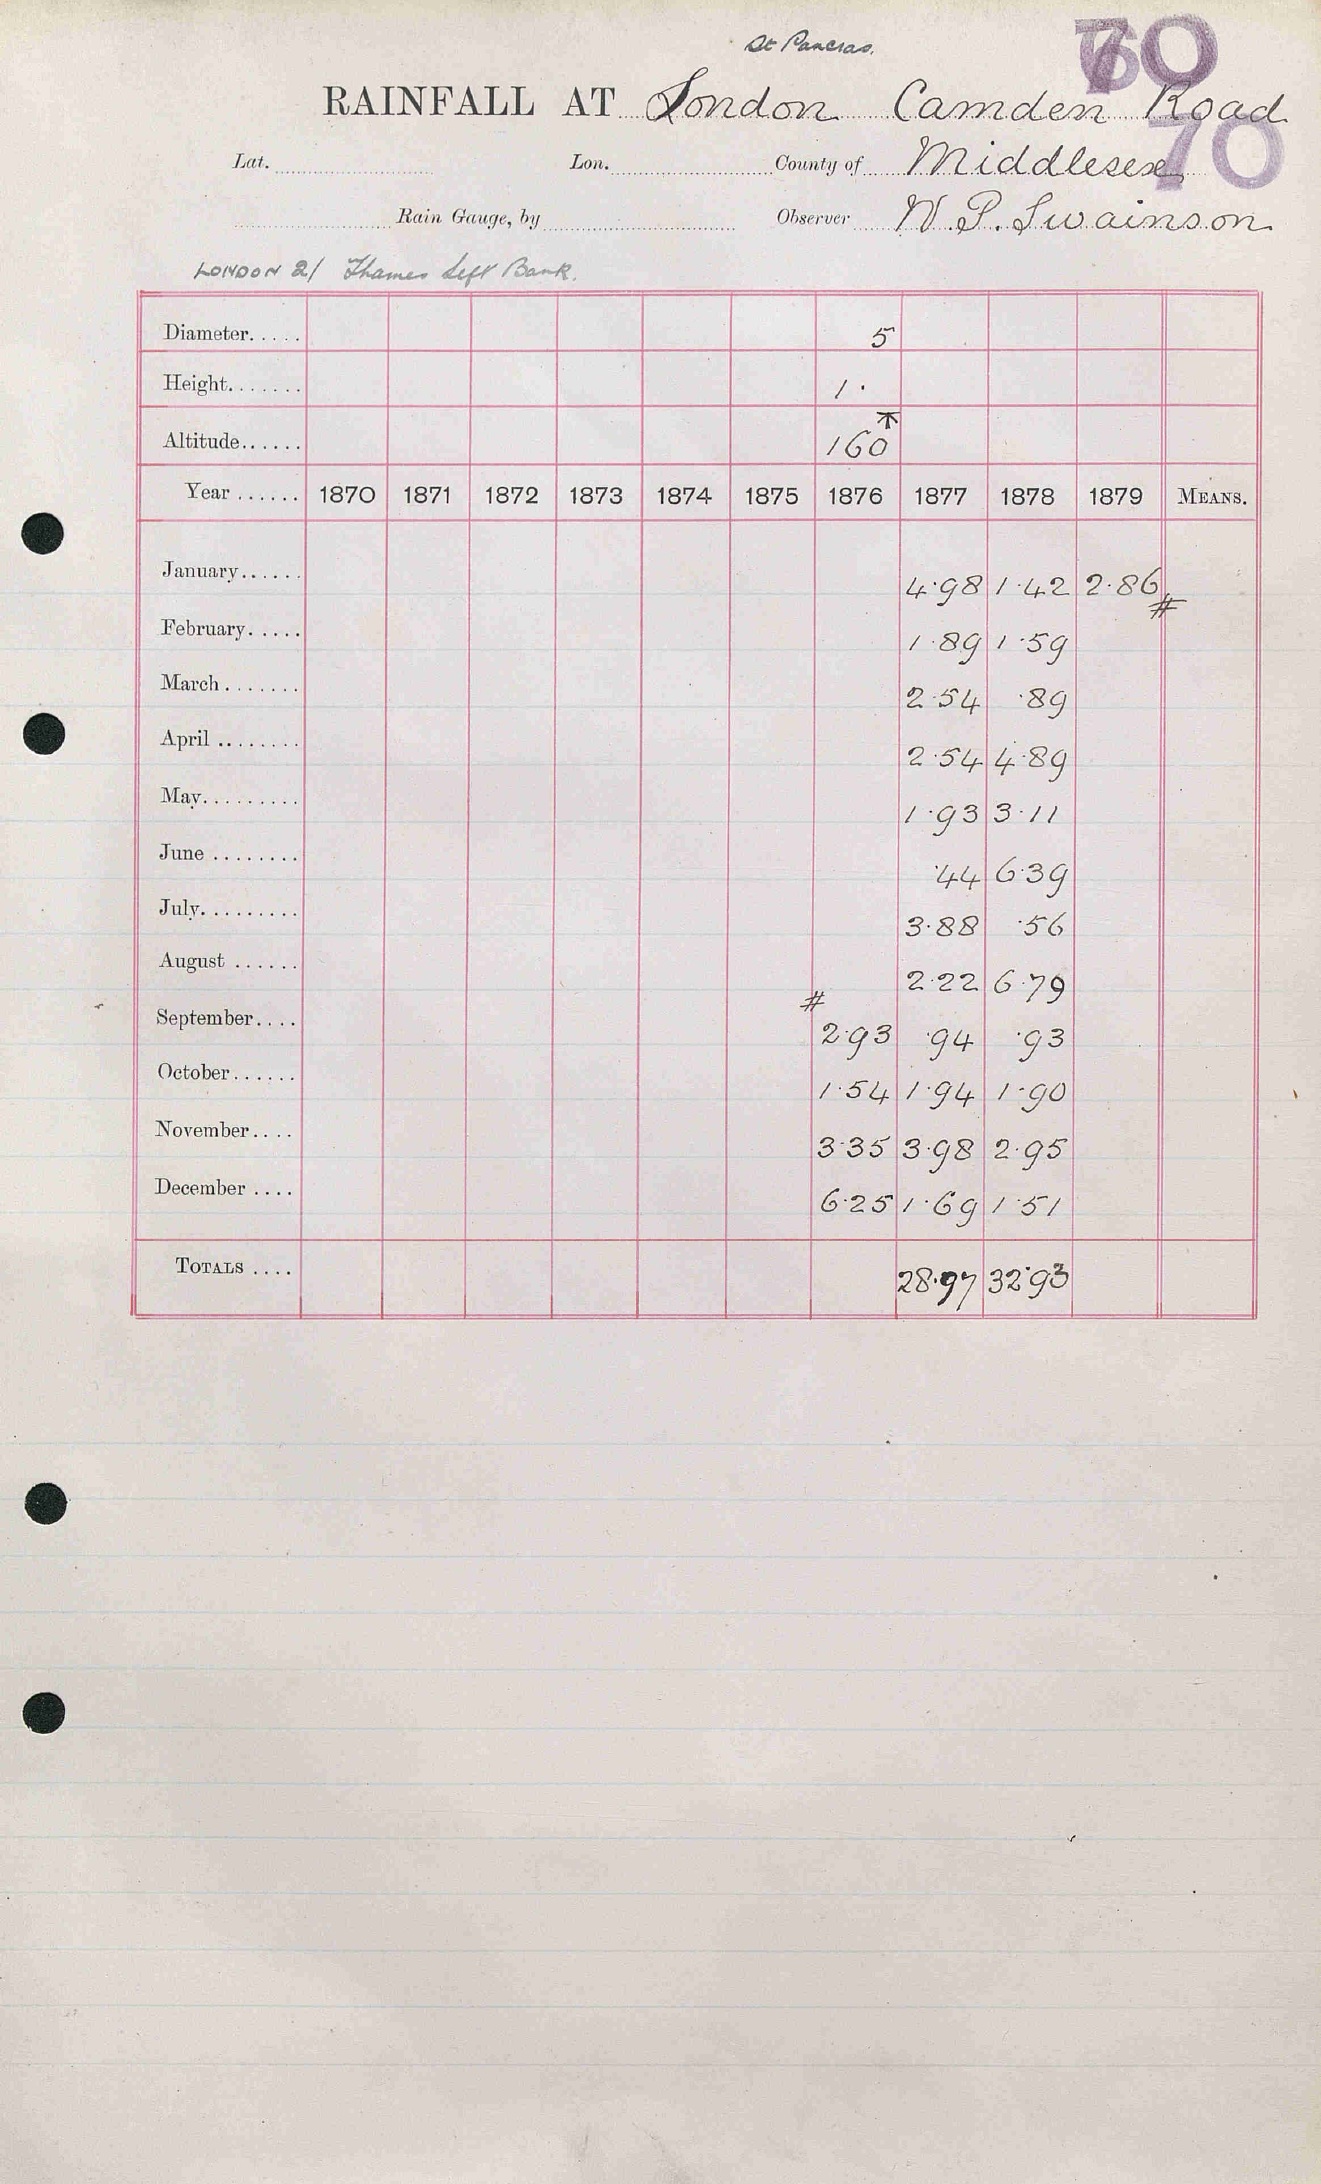 St Pancras.
70
RAINFALL AT London Camden Road
70
Lat. Lon. County of Middlesex
Rain Gauge, by Observer W. P. Swainson
LONDON 2/ Thames Left Bank.
Diameter..... 5
Height....... 1.
Altitude...... 160
Year ...... 1870 1871 1872 1873 1874 1875 1876 1877 1878 1879 MEANS.
January...... 4.98 1.42 2.86 #
February..... 1.89 1.59
March....... 2.54 .89
April ........ 2.54 4.89
May......... 1.93 3.11
June ........ .44 6.39
July......... 3.88 .56
August ...... 2.22 6.79
# September.... 2.93 .94 .93
October...... 1.54 1.94 1.90
November.... 3.35 3.98 2.95
December .... 6.25 1.69 1.51
TOTALS .... 28.97 32.93